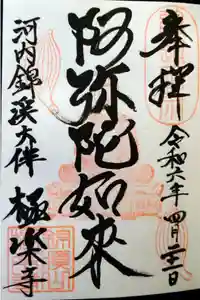 奉拝
令和六年四月二十一日
阿弥陀如来
河内錦溪大伴
極楽寺